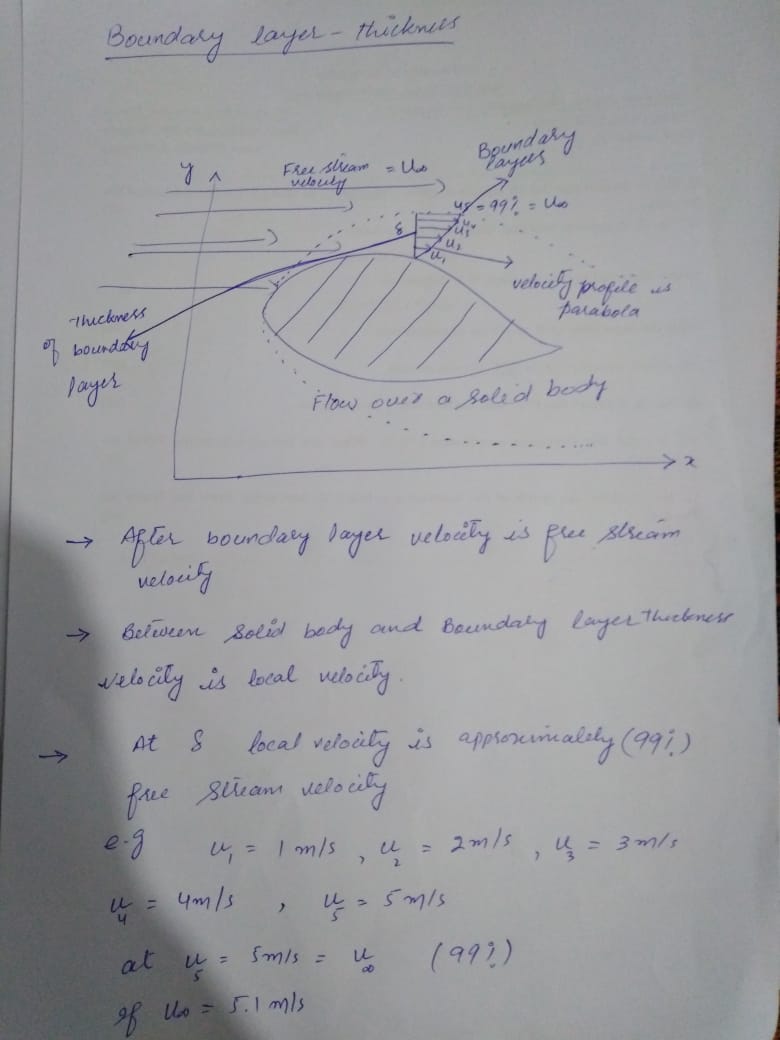 Boundary layer - thickness
y
Free stream velocity = U∞
Boundary layers
u5 = 99% = U∞
u4
u3
u2
u1
δ
velocity profile is parabola
Thickness of boundary layer
Flow over a solid body
x
→ After boundary layer velocity is free stream
velocity
→ Between solid body and Boundary layer thickness
velocity is local velocity.
→ At δ local velocity is approximately (99%)
free stream velocity
e.g u1 = 1 m/s , u2 = 2 m/s , u3 = 3 m/s
u4 = 4 m/s , u5 = 5 m/s
at u5 = 5 m/s = u∞ (99%)
If U∞ = 5.1 m/s